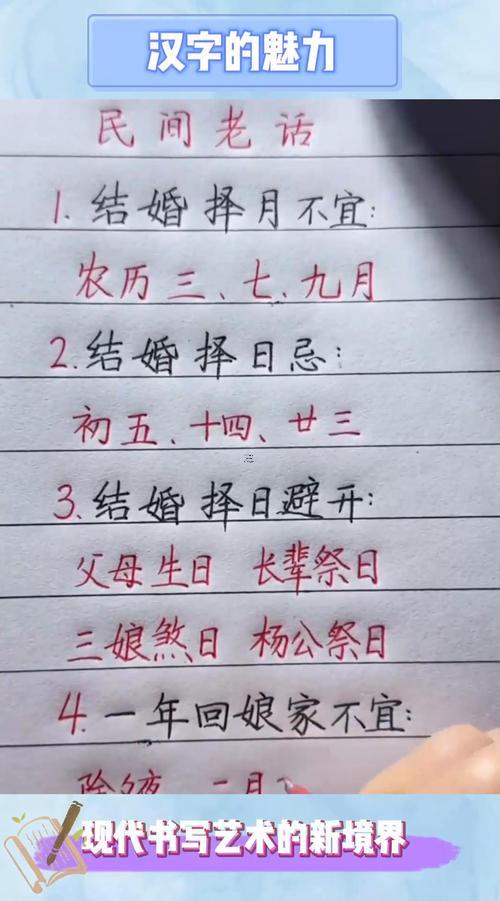 汉字的魅力
民间老话
1.结婚择月不宜:
农历三、七、九月
2.结婚择日忌:
初五、十四、廿三
3.结婚择日避开:
父母生日 长辈祭日
三娘煞日 杨公祭日
4.一年回娘家不宜:
除夕夜 二月
现代书写艺术的新境界